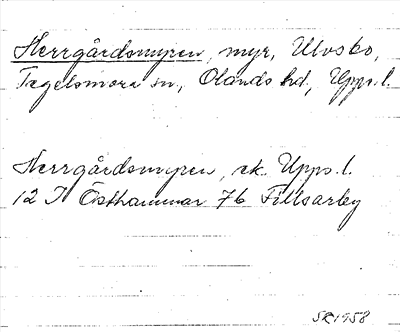 Herrgårdsmyren, myr, Ulvsbo,
Tegelsmora sn, Olands hd, Upps. l.
Herrgårdsmyren, ek. Upps. l.
12 I Östhammar 7b Tillsarby
SR 1958